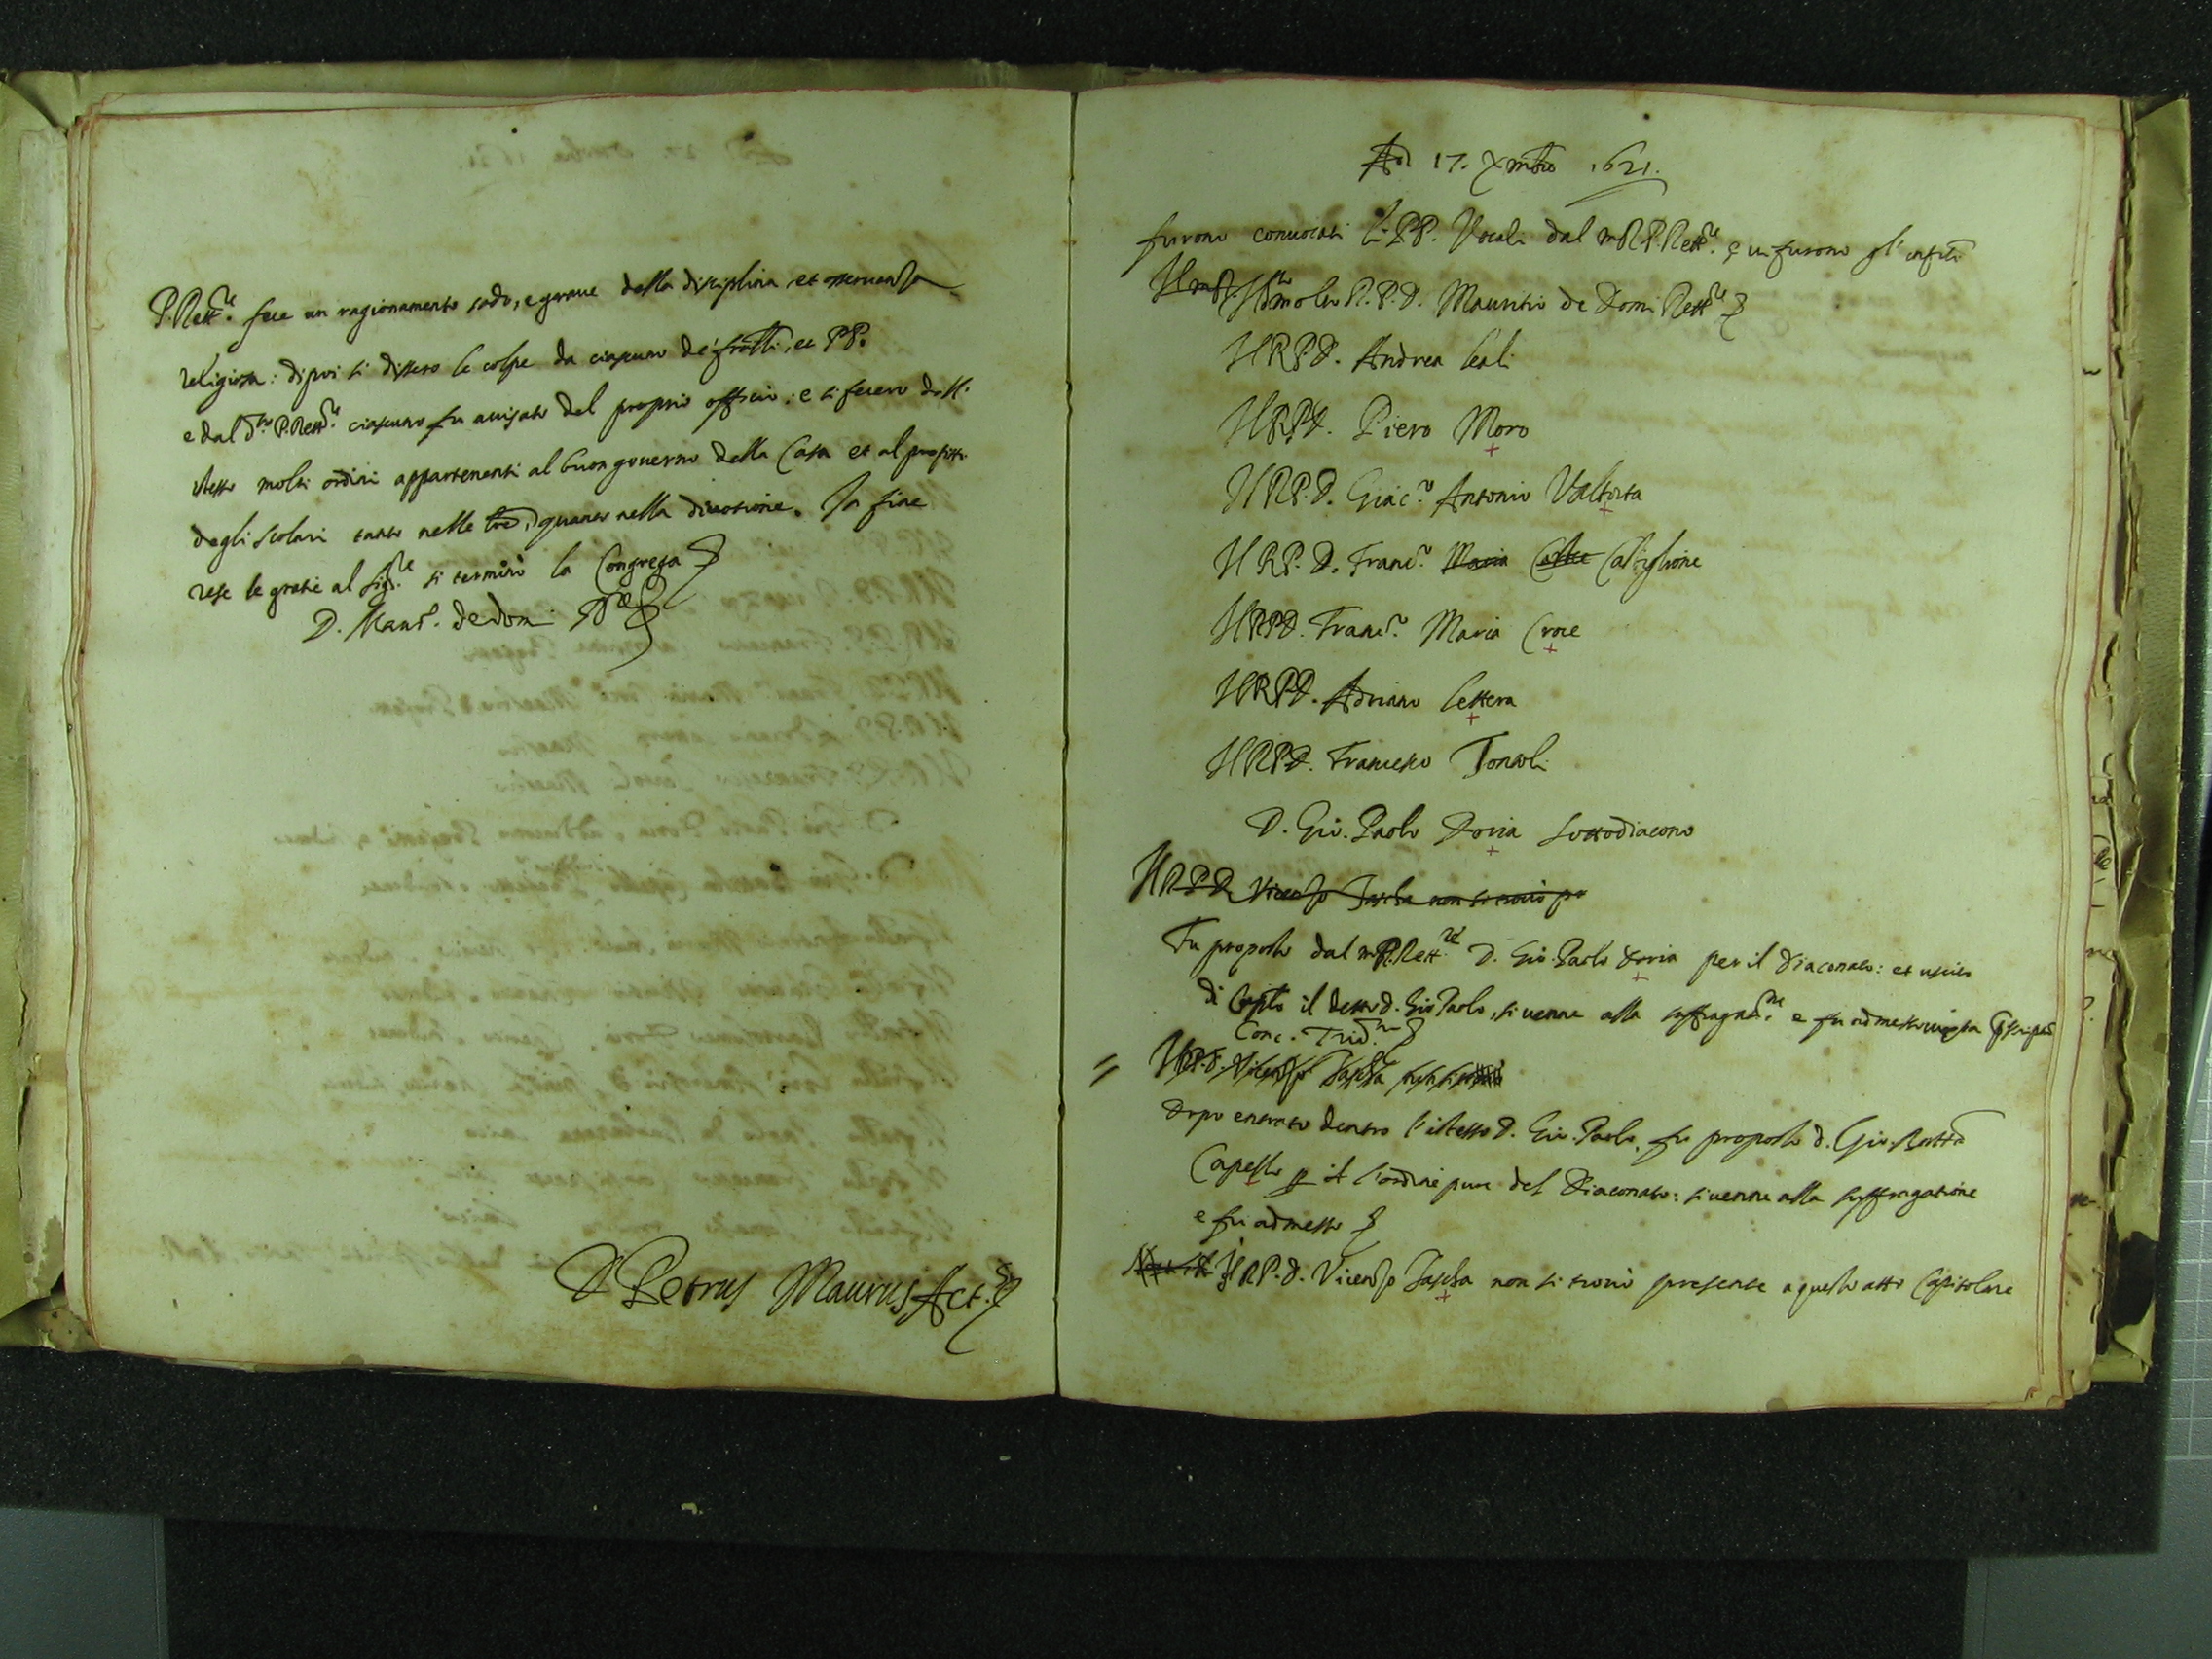 P. Rett.re fece un ragionamento sodo, e grave della disciplina et osservanza
religiosa: dipoi si dissero le colpe da ciascuno de' fratelli, et PP.
e dal d.to P. Rett.re ciascuno fu avisato del proprio officio: e si fecero dall'
istesso molti ordini appartenenti al buon governo della Casa et al profitto
degli scolari tanto nelle lre, quanto nella divotione. In fine
rese le gratie al Sig.re si terminò la Congrega
D. Maur.o de Domi
D. Petrus Maurus Act.s
Adi 17. Xmbre 1621.
furono convocati li PP. Vocali dal m R P. Rett.re e vi furono gl' infrti
Il molto R. P. D. Mauritio de Domi Rett.re
Il R P D. Andrea Leali
Il R P D. Piero Moro
Il R P. D. Giac.o Antonio Valtorta
Il R P. D. Franc.o Maria Castiglione
Il R P D. Franc.o Maria Croce
Il R P D. Adriano Lettera
Il R P D. Francesco Tonsoli
D. Gio. Paolo Doria Sottodiacono
Il R P D. Vicenzo Tascha non si trovò pe
Fu proposto dal m R P. Rett.re D. Gio. Paolo Doria per il diaconato: et uscito
di Capto il detto D. Gio Paolo, si venne alla suffragat.ne e fu admesso
Conc. Trid.no
Il R P. D. Vicenzo Tascha non si trovò
Dopo entrato dentro l'istesso D. Gio. Paolo, fu proposto D. Gio. Batta
Capello p il l'ordine pure del Diaconato: si venne alla suffragatione
e fu admesso
Il R P. D. Vicenzo Tascha non si trovò presente a questo atto Capitolare